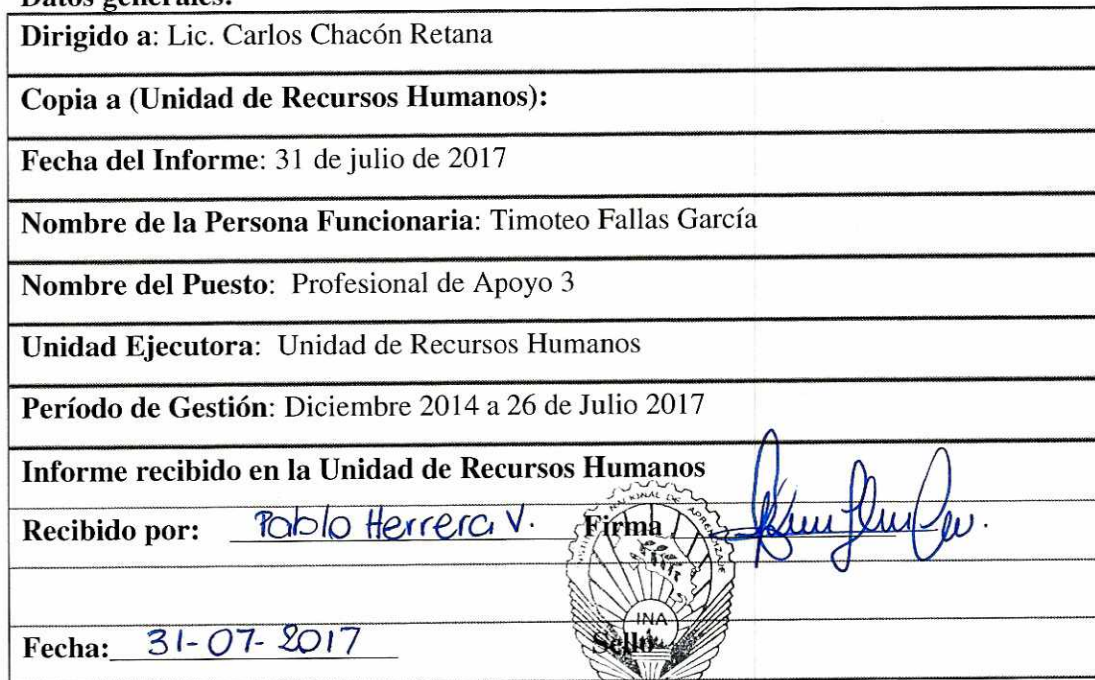 Datos generales:
Dirigido a: Lic. Carlos Chacón Retana
Copia a (Unidad de Recursos Humanos):
Fecha del Informe: 31 de julio de 2017
Nombre de la Persona Funcionaria: Timoteo Fallas García
Nombre del Puesto: Profesional de Apoyo 3
Unidad Ejecutora: Unidad de Recursos Humanos
Período de Gestión: Diciembre 2014 a 26 de Julio 2017
Informe recibido en la Unidad de Recursos Humanos
Recibido por: Pablo Herrera V. Firma
NACIONAL DE APRENDIZAJE
INA
Fecha: 31-07-2017 Sello